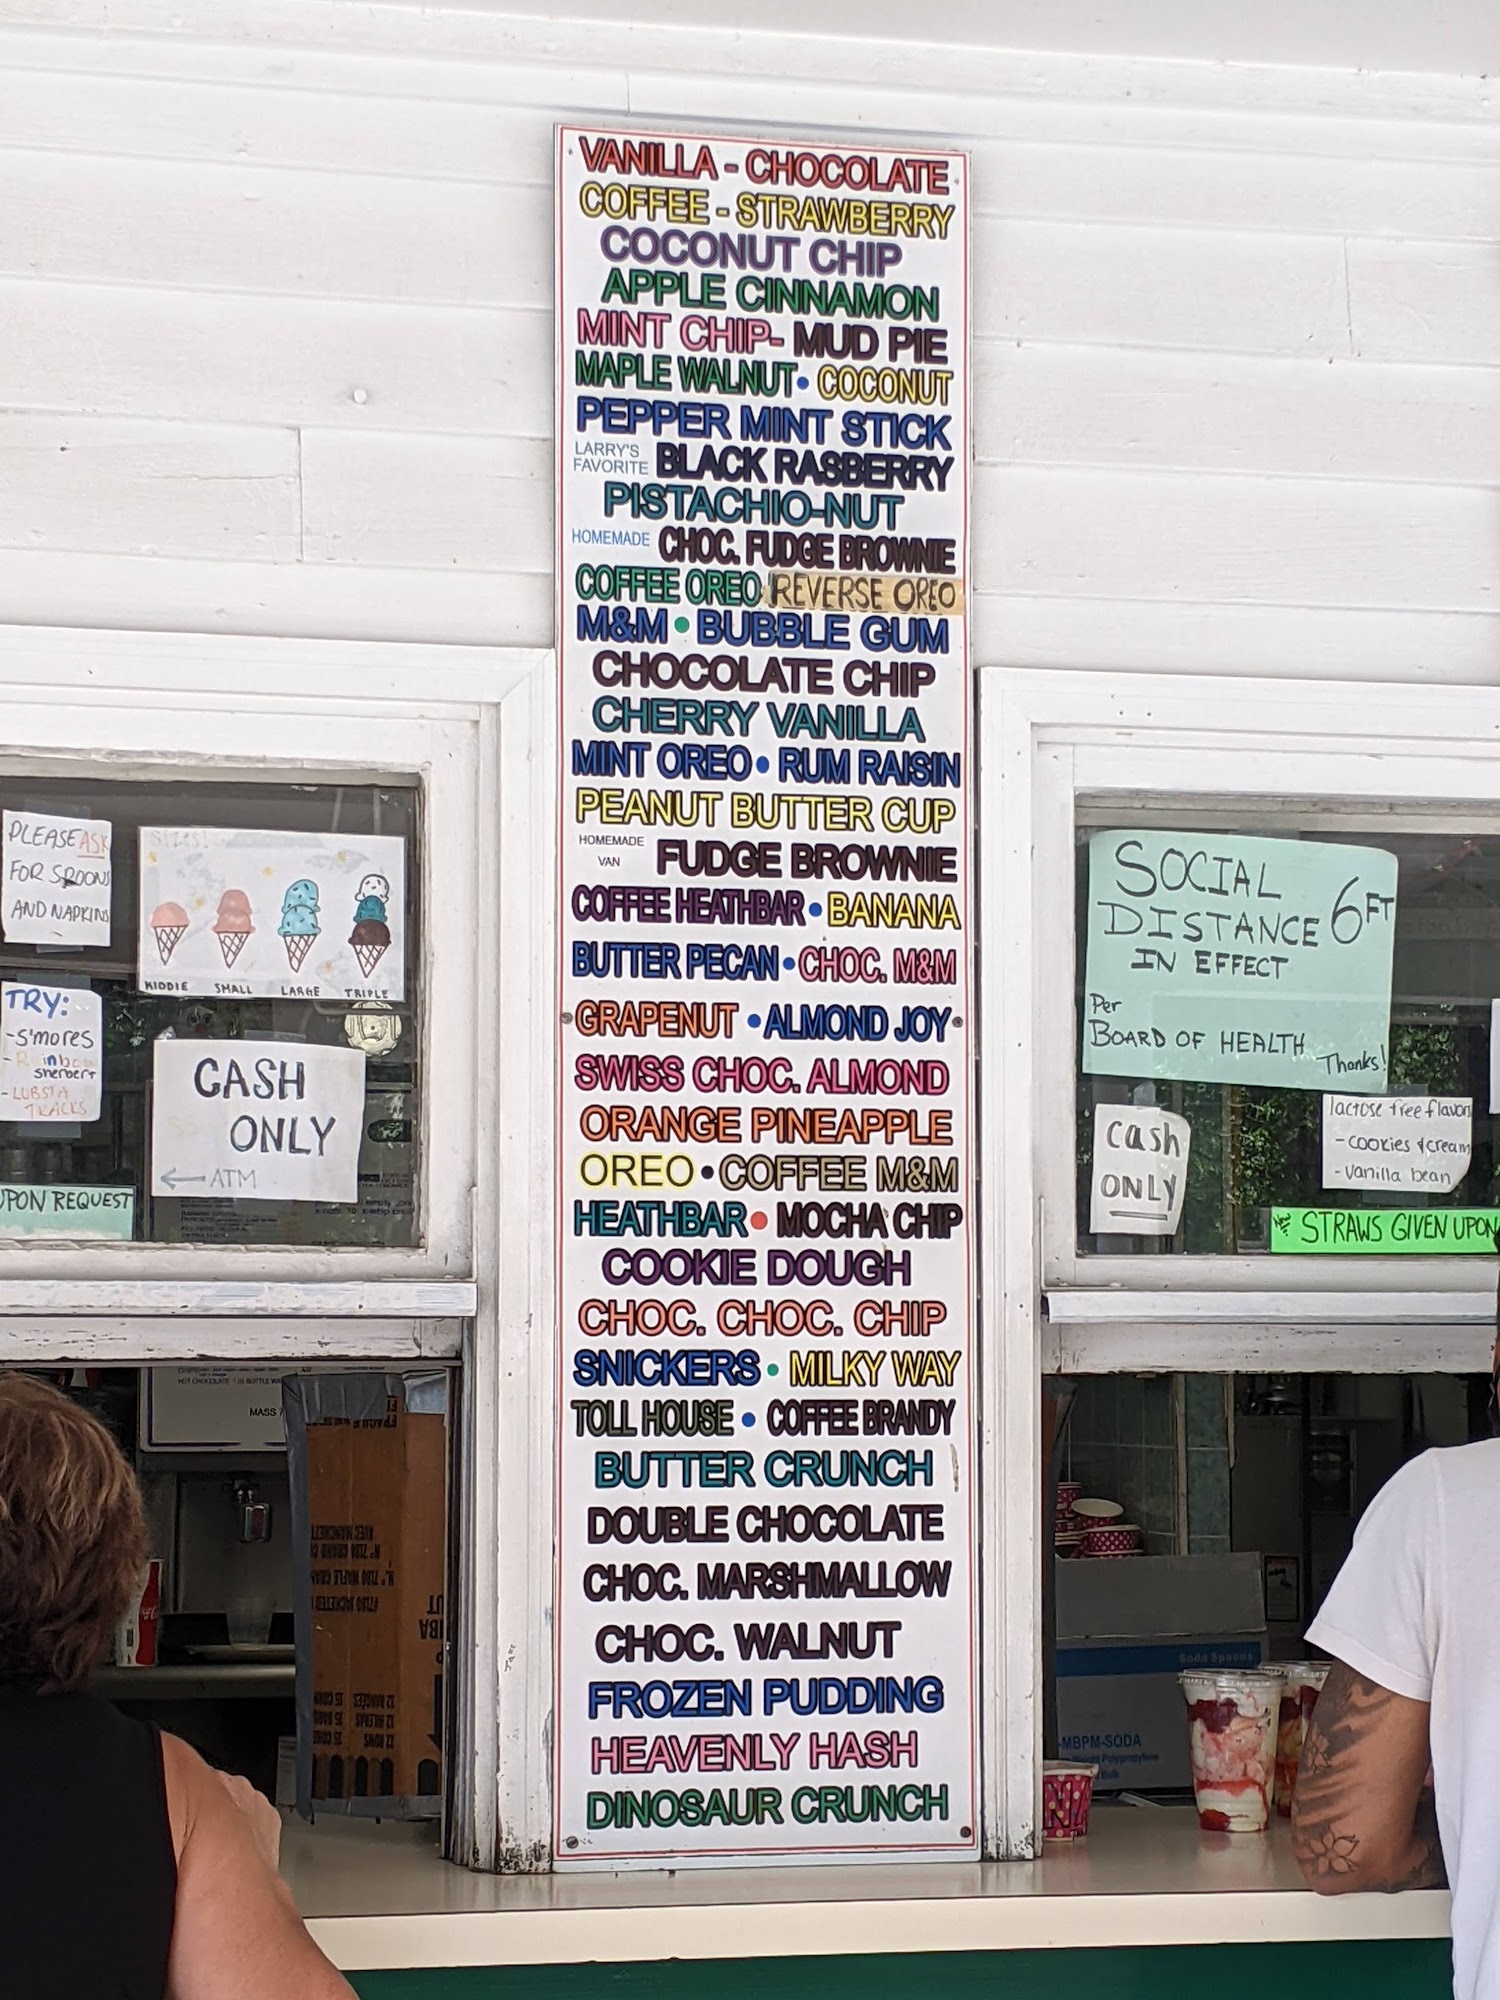 VANILLA - CHOCOLATE
COFFEE - STRAWBERRY
COCONUT CHIP
APPLE CINNAMON
MINT CHIP- MUD PIE
MAPLE WALNUT • COCONUT
PEPPER MINT STICK
LARRY'S
FAVORITE BLACK RASBERRY
PISTACHIO-NUT
HOMEMADE CHOC. FUDGE BROWNIE
COFFEE OREO REVERSE OREO
M&M • BUBBLE GUM
CHOCOLATE CHIP
CHERRY VANILLA
MINT OREO • RUM RAISIN
PEANUT BUTTER CUP
HOMEMADE
VAN FUDGE BROWNIE
COFFEE HEATHBAR • BANANA
BUTTER PECAN • CHOC. M&M
GRAPENUT • ALMOND JOY
SWISS CHOC. ALMOND
ORANGE PINEAPPLE
OREO • COFFEE M&M
HEATHBAR • MOCHA CHIP
COOKIE DOUGH
CHOC. CHOC. CHIP
SNICKERS • MILKY WAY
TOLL HOUSE • COFFEE BRANDY
BUTTER CRUNCH
DOUBLE CHOCOLATE
CHOC. MARSHMALLOW
CHOC. WALNUT
FROZEN PUDDING
HEAVENLY HASH
DINOSAUR CRUNCH
PLEASE ASK
FOR SPOONS
AND NAPKINS
KIDDIE SMALL LARGE TRIPLE
TRY:
-S'mores
-Rainbow
sherbert
-LOBSTA
TRACKS
CASH
ONLY
← ATM
UPON REQUEST
MASS
SOCIAL
DISTANCE 6FT
IN EFFECT
Per
BOARD OF HEALTH
Thanks!
cash
ONLY
lactose free flavors
- cookies & cream
- vanilla bean
STRAWS GIVEN UPON
Soda Spoons
-MBPM-SODA